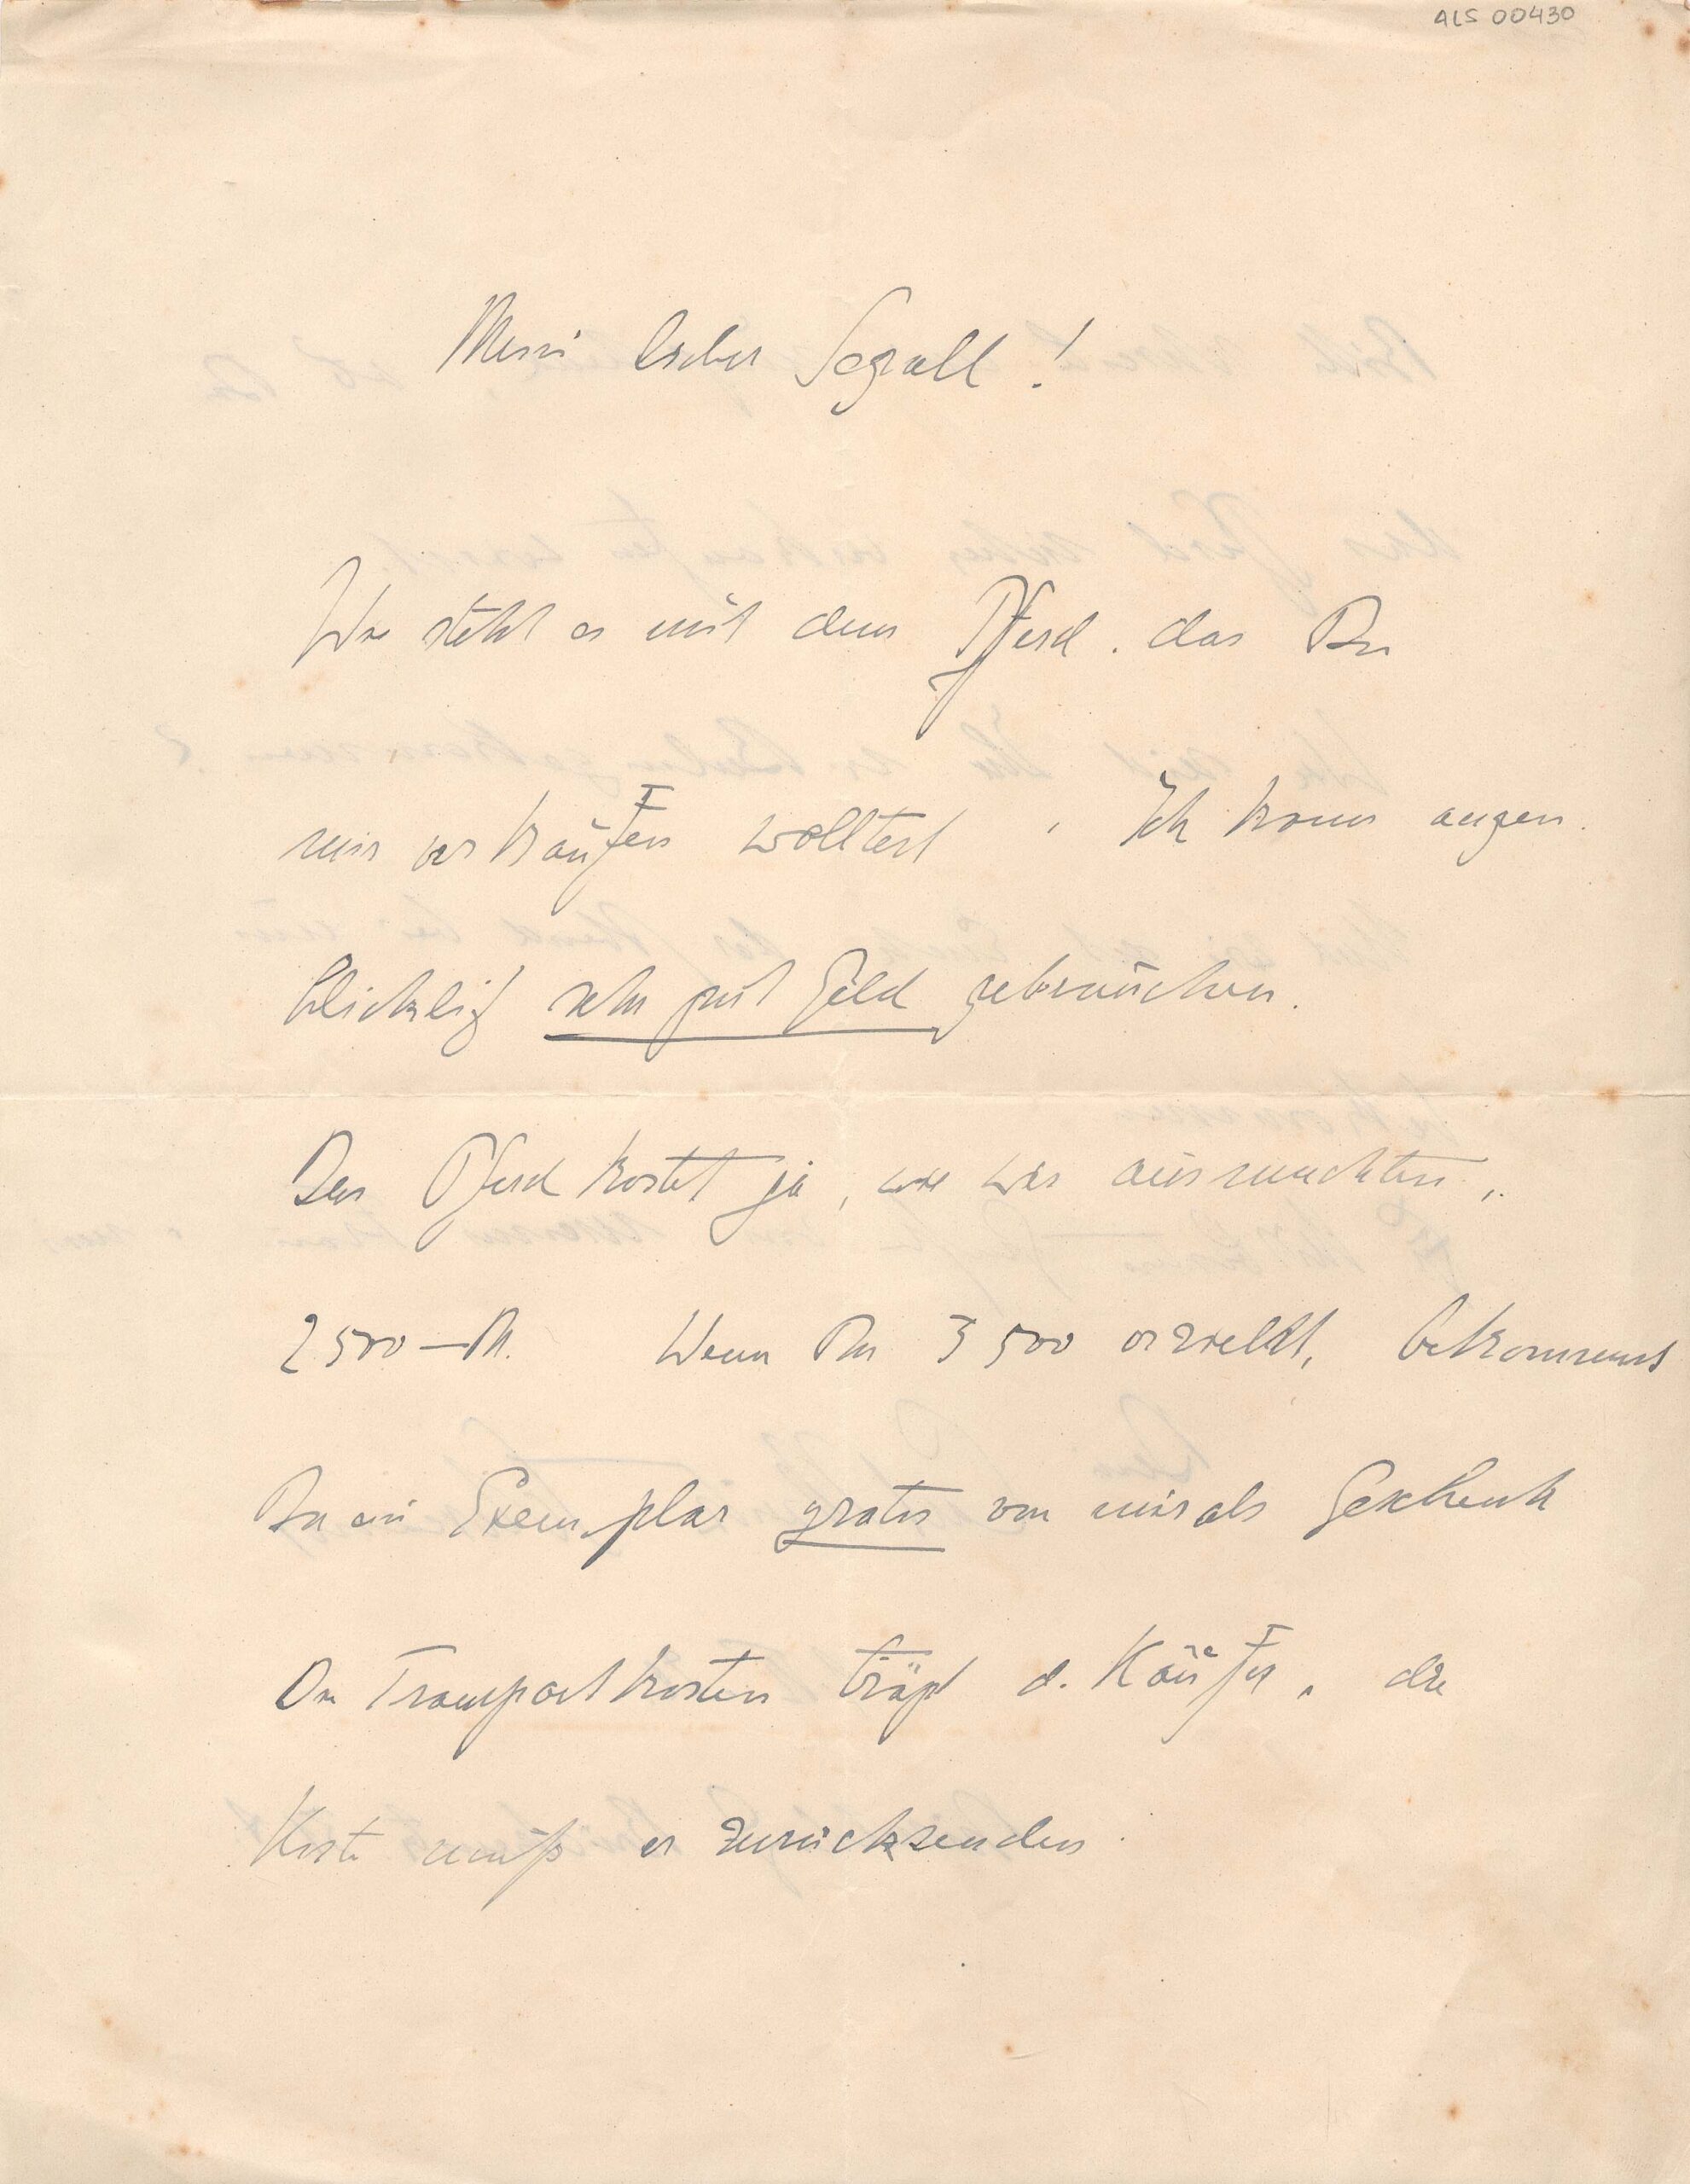 ALS 00430
Mein lieber Segall!
Wie steht es mit dem Pferd. das Du
mir verkaufen wolltest, Ich kann augen.
blicklich sehr gut Geld gebrauchen.
Das Pferd kostet ja, wie wir ausmachten,
2500 – M. Wenn Du 3500 erzielst, bekommst
Du ein Exemplar gratis von mir als Geschenk
Die Transportkosten trägt d. Käufer, die
Kiste muß er zurücksenden.